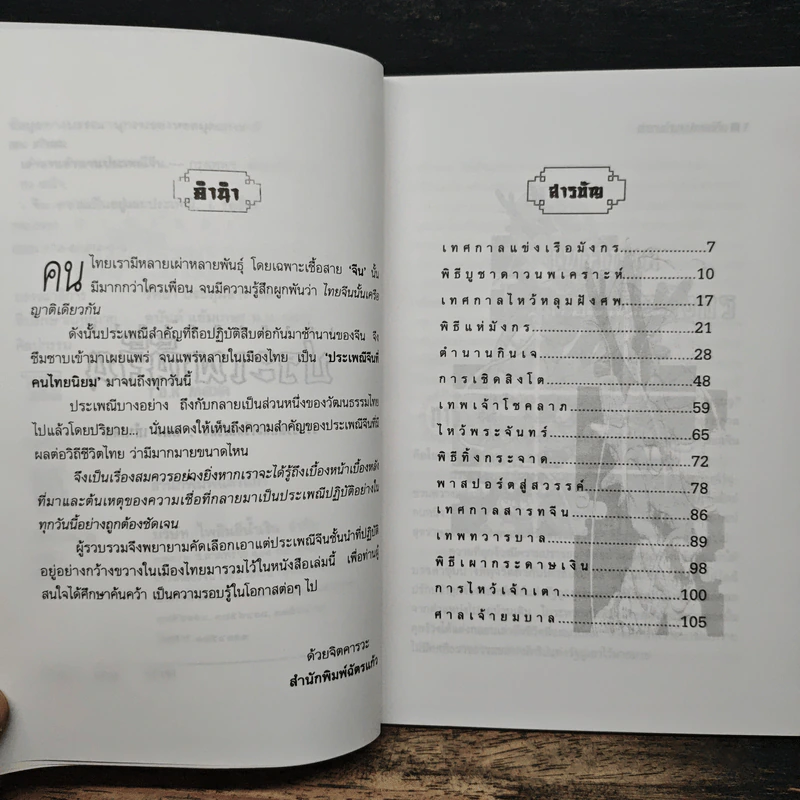 คำนำ
คนไทยเรามีหลายเผ่าหลายพันธุ์ โดยเฉพาะเชื้อสาย 'จีน' นั้น
มีมากกว่าใครเพื่อน จนมีความรู้สึกผูกพันว่า ไทยจีนนั้นเครือ
ญาติเดียวกัน
ดังนั้นประเพณีสำคัญที่ถือปฏิบัติสืบต่อกันมาช้านานของจีน จึง
ซึมซาบเข้ามาเผยแพร่ จนแพร่หลายในเมืองไทย เป็น 'ประเพณีจีนที่
คนไทยนิยม' มาจนถึงทุกวันนี้
ประเพณีบางอย่าง ถึงกับกลายเป็นส่วนหนึ่งของวัฒนธรรมไทย
ไปแล้วโดยปริยาย... นั่นแสดงให้เห็นถึงความสำคัญของประเพณีจีนที่มี
ผลต่อวิถีชีวิตไทย ว่ามีมากมายขนาดไหน
จึงเป็นเรื่องสมควรอย่างยิ่งหากเราจะได้รู้ถึงเบื้องหน้าเบื้องหลัง
ที่มาและต้นเหตุของความเชื่อที่กลายมาเป็นประเพณีปฏิบัติอย่างใน
ทุกวันนี้อย่างถูกต้องชัดเจน
ผู้รวบรวมจึงพยายามคัดเลือกเอาแต่ประเพณีจีนชั้นนำที่ปฏิบัติ
อยู่อย่างกว้างขวางในเมืองไทยมารวมไว้ในหนังสือเล่มนี้ เพื่อท่านผู้
สนใจได้ศึกษาค้นคว้า เป็นความรอบรู้ในโอกาสต่อๆ ไป
ด้วยจิตคารวะ
สำนักพิมพ์ฉัตรแก้ว
สารบัญ
เทศกาลแข่งเรือมังกร......................7
พิธีบูชาดาวนพเคราะห์..................10
เทศกาลไหว้หลุมฝังศพ..................17
พิธีแห่มังกร..................21
ตำนานกินเจ..................28
การเชิดสิงโต..................48
เทพเจ้าโชคลาภ..................59
ไหว้พระจันทร์..................65
พิธีทิ้งกระจาด..................72
พาสปอร์ตสู่สวรรค์..................78
เทศกาลสารทจีน..................86
เทพทวารบาล..................89
พิธีเผากระดาษเงิน..................98
การไหว้เจ้าเตา..................100
ศาลเจ้ายมบาล..................105